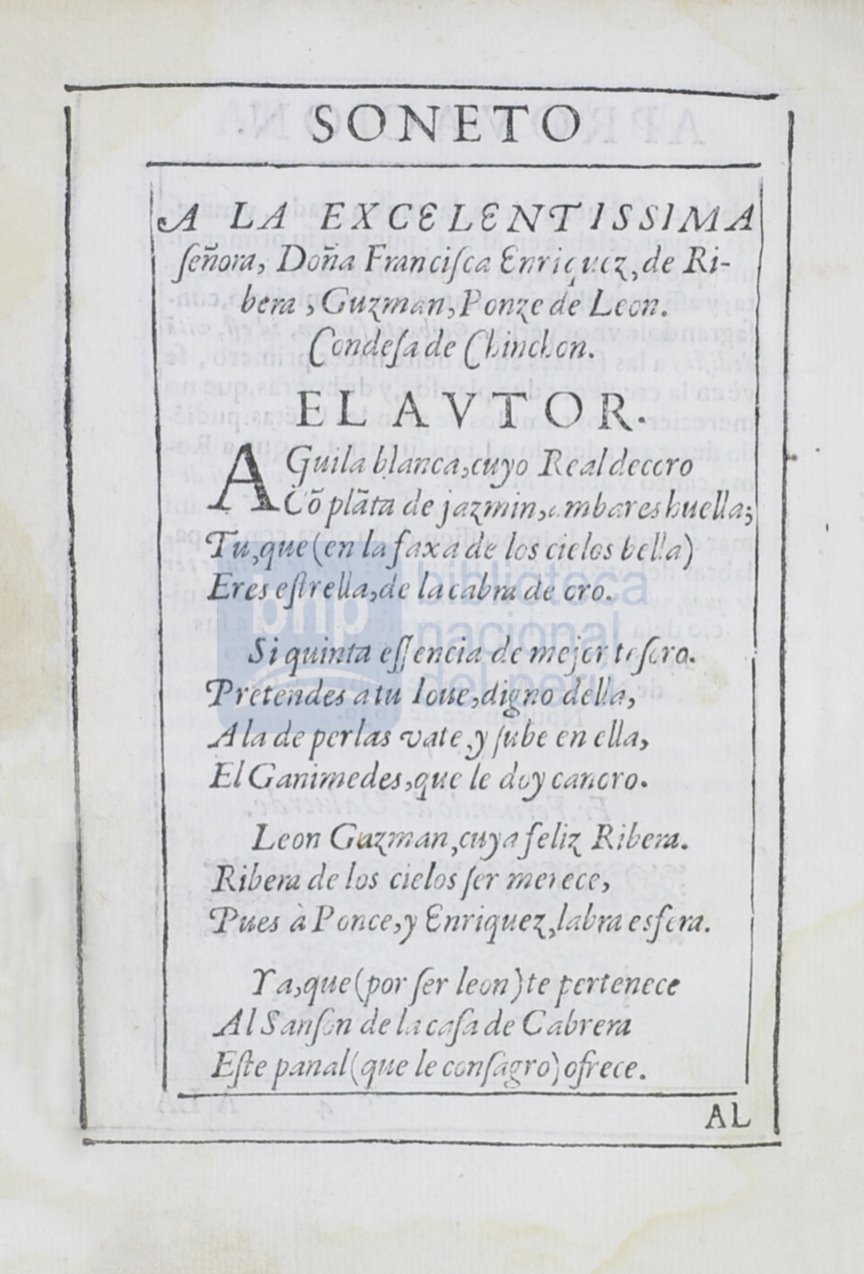 SONETO
A LA EXCELENTISSIMA
ſeñora, Doña Franciſca Enriquez, de Ri-
bera, Guzman, Ponze de Leon.
Condeſa de Chinchon.
EL AVTOR.
AGuila blanca, cuyo Real decoro
Cõ plãta de jazmin, ambares huella;
Tu, que (en la faxa de los cielos bella)
Eres eſtrella, de la cabra de oro.
Si quinta eſſencia de mejor teſoro.
Pretendes a tu Ioue, digno della,
A la de perlas vate, y ſube en ella,
El Ganimedes, que le doy canoro.
Leon Guzman, cuya feliz Ribera.
Ribera de los cielos ſer merece,
Pues à Ponce, y Enriquez, labra esfera.
Ya, que (por ſer leon) te pertenece
Al Sanſon de la caſa de Cabrera
Eſte panal (que le conſagro) ofrece.
AL
bnp biblioteca
nacional
del perú